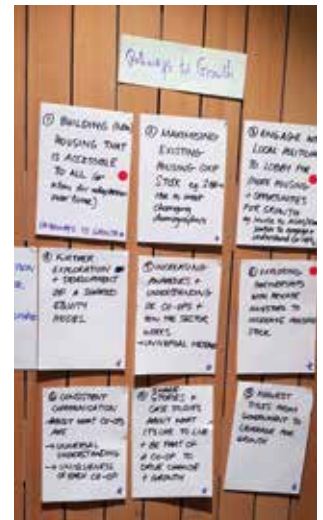 Pathways to Growth
① BUILDING NEW
HOUSING THAT
IS ACCESSIBLE
TO ALL (or
allows for adaptations
over time)
PATHWAYS TO GROWTH
② MAXIMISING
EXISTING
HOUSING CO-OP
STOCK eg
to meet
changing
demographics
③ ENGAGE
LOCAL
TO LOBBY FOR
MORE HOUSING
+ OPPORTUNITIES
FOR GROWTH
④ FURTHER
EXPLORATION
+ DEVELOPMENT
OF A SHARED
EQUITY
MODEL
⑤ INCREASING
AWARENESS +
UNDERSTANDING
OF CO-OPS +
HOW THE SECTOR
WORKS
→ UNIVERSAL
EXPLORING
PARTNERSHIPS
WITH PRIVATE
INVESTORS TO
INCREASE HOUSING
STOCK
CONSISTENT
COMMUNICATION
ABOUT WHAT CO-OPS
ARE
→ UNIVERSAL
UNDERSTANDING
→ UNIQUENESS
OF EACH CO-OP
STORIES +
CASE STUDIES
ABOUT WHAT
IT'S LIKE TO LIVE
+ BE PART OF
A CO-OP TO
DRIVE CHANGE
+ GROWTH
REQUEST
TITLES FROM
GOVERNMENT TO
LEVERAGE FOR
GROWTH